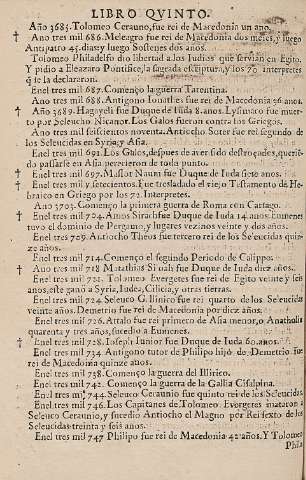 LIBRO QVINTO.
Año 3685. Tolomeo Cerauno, fue rei de Macedonia un año.
† Ano tres mil 686. Meleagro fue rei de Macedonia dos meses, y luego
Antipatro 45. dias y luego Sostenes dos años.
Tolomeo Philadelfo dio libertad a los Iudios que servian en Egito.
Y pidio a Eleazaro Pontifice, la sagrada escritura, y los 70 interpretes
q̃ se la declararon.
Enel tres mil 687. Començo la guerra Tarentina.
† Ano tres mil 688. Antigono Ionottes fue rei de Macedonia 36 años.
† Año 3689. Hagayeli fue Duque de Iuda 8. anos. Lysimaco fue muer-
to por Seleucho Nicanor. Los Galos fueron contra los Griegos.
Ano tres mil seiscientos noventa. Antiocho Soter fue rei segundo de
los Seleucidas en Syria, y Asia.
Enel tres mil 691. Los Galos, despues de aver sido destroçados, querié-
do passarse en Asia perecieron de todo punto.
† Enel tres mil 697. Masłot Naum fue Duque de Iuda siete años.
† Enel tres mil, y setecientos. Fue trasladado el viejo Testamento de He-
braico en Griego por los 72. Interpretes.
Año 3703. Començo la primera guerra de Roma con Cartago.
† Enel tres mil 704. Amos Sirach fue Duque de Iuda 14. anos. Eumenes
tuvo el dominio de Pergamo, y lugares vezinos veinte y dos años.
Enel tres 709. Antiocho Theos fue tercero rei de los Seleucidas quin-
ze años.
Enel tres mil 714. Començo el segundo Periodo de Calippo.
† Ano tres mil 718. Matathias Siloah fue Duque de Iuda diez años.
Enel tres mil 721. Tolameo Evergetes fue rei de Egito veinte y seis
años, este ganò a Syria, Iudea, Cilicia, y otras tierras.
Enel tres mil 724. Seleuco Callinico fue rei quarto de los Seleucidas
veinte años. Demetrio fue rei de Macedonia por diez años.
Enel tres mil 726. Attalo fue rei primero de Asia menor, o Anatholia
quarenta y tres años, sucedio a Eumenes.
† Enel tres mil 728. Ioseph Iunior fue Duque de Iuda 60. anos.
Enel tres mil 734. Antigono tutor de Philipo hijo de Demetrio fue
rei de Macedonia quinze años.
Enel tres mil 738. Començo la guerra del Illirico.
Enel tres mil 742. Començo la guerra de la Gallia Cisalpina.
Enel tres mil 744. Seleuco Cerauno fue quinto rei de los Seleucidas.
Enel tres mil 746. Los Capitanes de Tolomeo Evergetes mataron a
Seleuco Ceraunio, y sucedio Antiocho el Magno por Rei sexto de los
Seleucidas treinta y seis años.
Enel tres mil 747 Philipo fue rei de Macedonia 42 años. Y Tolomeo
Phila